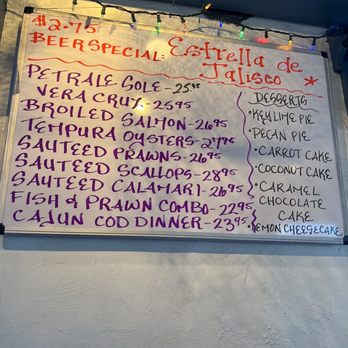 $2.75
BEER SPECIAL: Estrella de
Jalisco *
PETRALE SOLE - 25.95
VERA CRUZ - 25.95
BROILED SALMON - 26.95
TEMPURA OYSTERS - 27.95
SAUTEED PRAWNS - 26.95
SAUTEED SCALLOPS - 28.95
SAUTEED CALAMARI - 26.95
FISH & PRAWN COMBO - 22.95
CAJUN COD DINNER - 23.95
DESSERTS:
• KEY LIME PIE
• PECAN PIE
• CARROT CAKE
• COCONUT CAKE
• CARAMEL
CHOCOLATE
CAKE
• LEMON CHEESECAKE